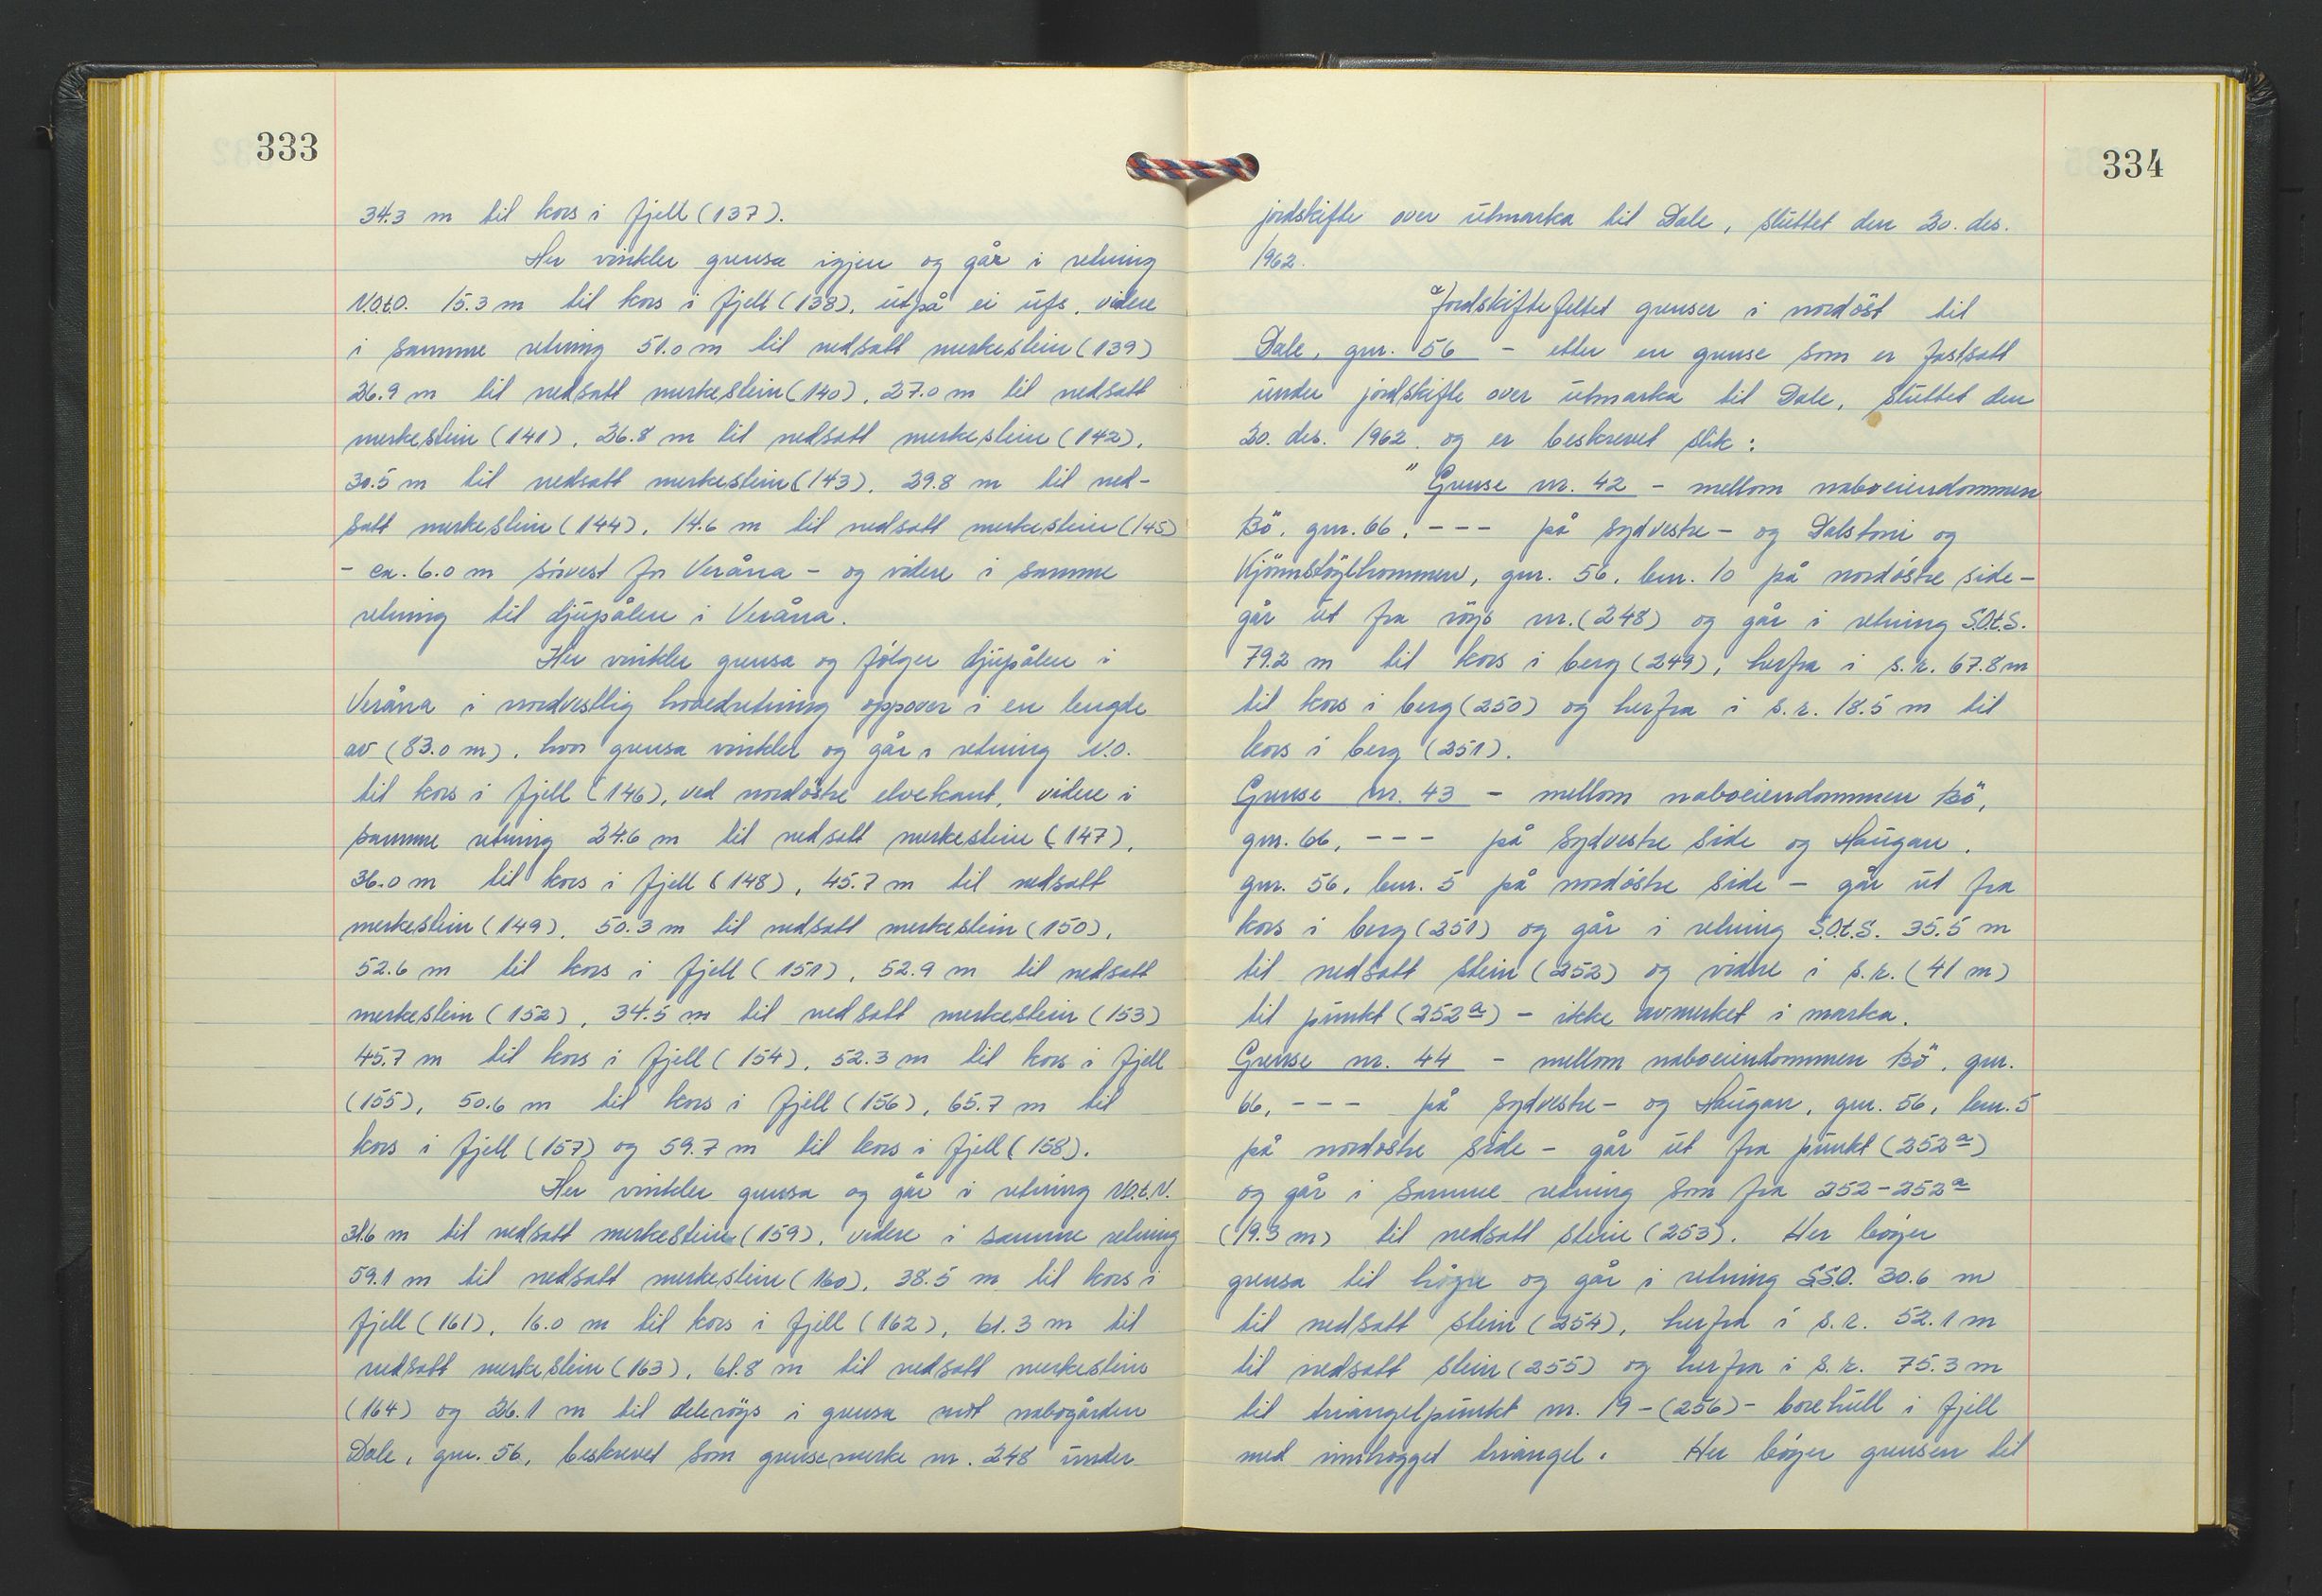 333
34.3 m til kors i fjell (137).
Her vinkler grensa igjen og går i retning
N.O.t.O. 15.3 m til kors i fjell (138), utpå ei ufs, videre
i samme retning 51.0 m til nedsatt merkestein (139)
26.9 m til nedsatt merkestein (140), 27.0 m til nedsatt
merkestein (141), 36.8 m til nedsatt merkestein (142),
30.5 m til nedsatt merkestein (143), 29.8 m til ned-
satt merkestein (144), 14.6 m til nedsatt merkestein (145)
- ca. 6.0 m sörvest for Veråna - og videre i samme
retning til djupålen i Veråna.
Her vinkler grensa og fölger djupålen i
Veråna i nordvestlig hovedretning oppover i en lengde
av (83.0 m), hvor grensa vinkler og går i retning N.O.
til kors i fjell (146), ved nordöstre elvekant, videre i
samme retning 24.6 m til nedsatt merkestein (147),
36.0 m til kors i fjell (148), 45.7 m til nedsatt
merkestein (149), 50.3 m til nedsatt merkestein (150),
52.6 m til kors i fjell (151), 52.9 m til nedsatt
merkestein (152), 34.5 m til nedsatt merkestein (153)
45.7 m til kors i fjell (154), 52.3 m til kors i fjell
(155), 50.6 m til kors i fjell (156), 65.7 m til
kors i fjell (157) og 59.7 m til kors i fjell (158).
Her vinkler grensa og går i retning N.O.t.N.
31.6 m til nedsatt merkestein (159), videre i samme retning
59.1 m til nedsatt merkestein (160), 38.5 m til kors i
fjell (161), 16.0 m til kors i fjell (162), 61.3 m til
nedsatt merkestein (163), 61.8 m til nedsatt merkestein
(164) og 26.1 m til deleröys i grensa mot nabogården
Dale, gnr. 56, beskrevet som grensemerke nr. 248 under
334
jordskifte over utmarka til Dale, sluttet den 20. des.
1962.
Jordskiftefeltet grenser i nordöst til
Dale, gnr. 56 - etter en grense som er fastsatt
under jordskifte over utmarka til Dale, sluttet den
20. des. 1962 og er beskrevet slik:
" Grense nr. 42 - mellom naboeiendommen
Bö, gnr. 66, --- på sydvestre - og Dalstoni og
Kjönnstöylhommen, gnr. 56, bnr. 10 på nordöstre side -
går ut fra röys nr. (248) og går i retning S.O.t.S.
79.2 m til kors i berg (249), herfra i s.r. 67.8 m
til kors i berg (250) og herfra i s.r. 18.5 m til
kors i berg (251).
Grense nr. 43 - mellom naboeiendommen Bö,
gnr. 66, --- på sydvestre side og Haugan,
gnr. 56, bnr. 5 på nordöstre side - går ut fra
kors i berg (251) og går i retning S.O.t.S. 35.5 m
til nedsatt stein (252) og videre i s.r. (41 m)
til punkt (252a) - ikke avmerket i marka.
Grense nr. 44 - mellom naboeiendommen Bö, gnr.
66, --- på sydvestre - og Haugan, gnr. 56, bnr. 5
på nordöstre side - går ut fra punkt (252a)
og går i samme retning som fra 252-252a
(19.3 m) til nedsatt stein (253). Her böyer
grensa til högre og går i retning S.S.O. 30.6 m
til nedsatt stein (254), herfra i s.r. 52.1 m
til nedsatt stein (255) og herfra i s.r. 75.3 m
til triangelpunkt nr. 19 - (256) - borehull i fjell
med innhogget triangel. Her böyer grensen til